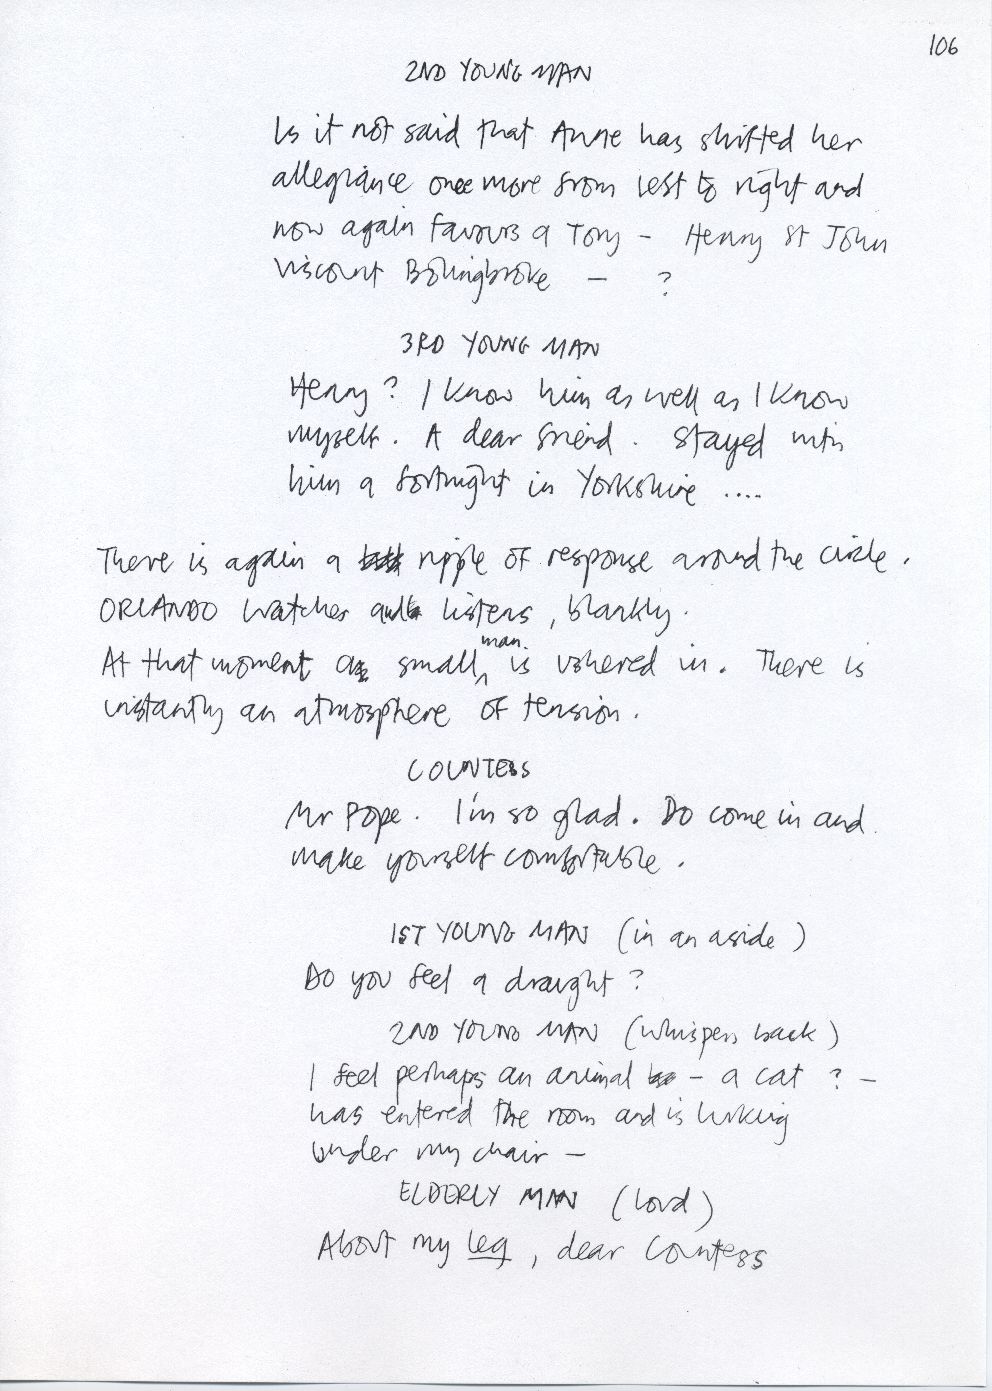 106
2ND YOUNG MAN
Is it not said that Anne has shifted her
allegiance once more from left to right and
now again favours a Tory – Henry St John
Viscount Bolingbroke – ?
3RD YOUNG MAN
Henry? I know him as well as I know
myself. A dear friend. Stayed with
him a fortnight in Yorkshire ....
There is again a ripple of response around the circle.
ORLANDO watches & listens, blankly.
At that moment a small man is ushered in. There is
instantly an atmosphere of tension.
COUNTESS
Mr Pope. I'm so glad. Do come in and
make yourself comfortable.
1ST YOUNG MAN (in an aside)
Do you feel a draught?
2ND YOUNG MAN (whispers back)
I feel perhaps an animal – a cat? –
has entered the room and is lurking
under my chair –
ELDERLY MAN (loud)
About my leg, dear Countess